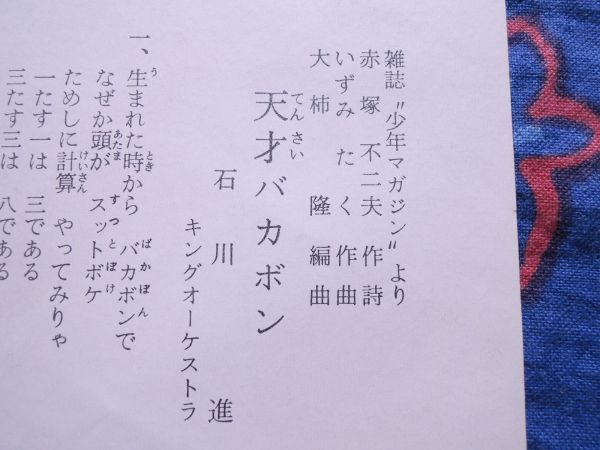 雑誌〝少年マガジン〟より
赤塚不二夫作詩
いずみたく作曲
大柿隆編曲
天才バカボン
てんさい
石川進
キングオーケストラ
一、生まれた時から バカボンで
う とき ばかぼん
なぜか頭が スットボケ
あたま すっとぼけ
ためしに計算 やってみりゃ
けいさん
一たす一は 三である
三たす三は 八である